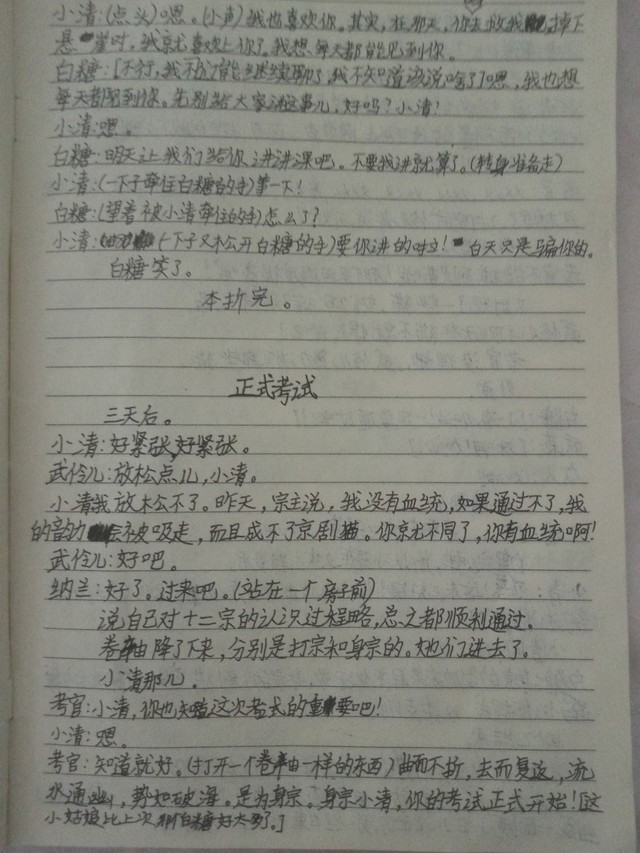 小清:(点头)嗯。(小声)我也喜欢你。其实,在那天,你去救我掉下
悬崖时,我就喜欢上你了。我想每天都能见到你。
白糖:[不行,我不能继续聊了,我不知道该说啥了]嗯,我也想
每天都见到你。先别给大家讲这事儿,好吗?小清!
小清:嗯。
白糖:明天让我们给你讲讲课吧。不要我讲就算了。(转身准备走)
小清:(一下子牵住白糖的手)等一下!
白糖:(望着被小清牵住的手)怎么了?
小清:(一下子又松开白糖的手)要你讲的啦!白天只是骗你的。
白糖笑了。
本折完。
正式考试
三天后。
小清:好紧张,好紧张。
武伶儿:放松点儿,小清。
小清我放松不了。昨天,宗主说,我没有血统,如果通过不了,我
的韵力会被吸走,而且成不了京剧猫。你就不同了,你有血统啊!
武伶儿:好吧。
纳兰:好了。过来吧。(站在一个房子前)
说自己对十二宗的认识过程略,总之都顺利通过。
卷轴降了下来,分别是打宗和身宗的。她们进去了。
小清那儿。
考官:小清,你也知道这次考试的重要吧!
小清:嗯。
考官:知道就好。(打开一个卷轴一样的东西)曲而不折,去而复返,流
水通幽,势如破海。是为身宗。身宗小清,你的考试正式开始![这
小姑娘比上次和白糖好大多了。]